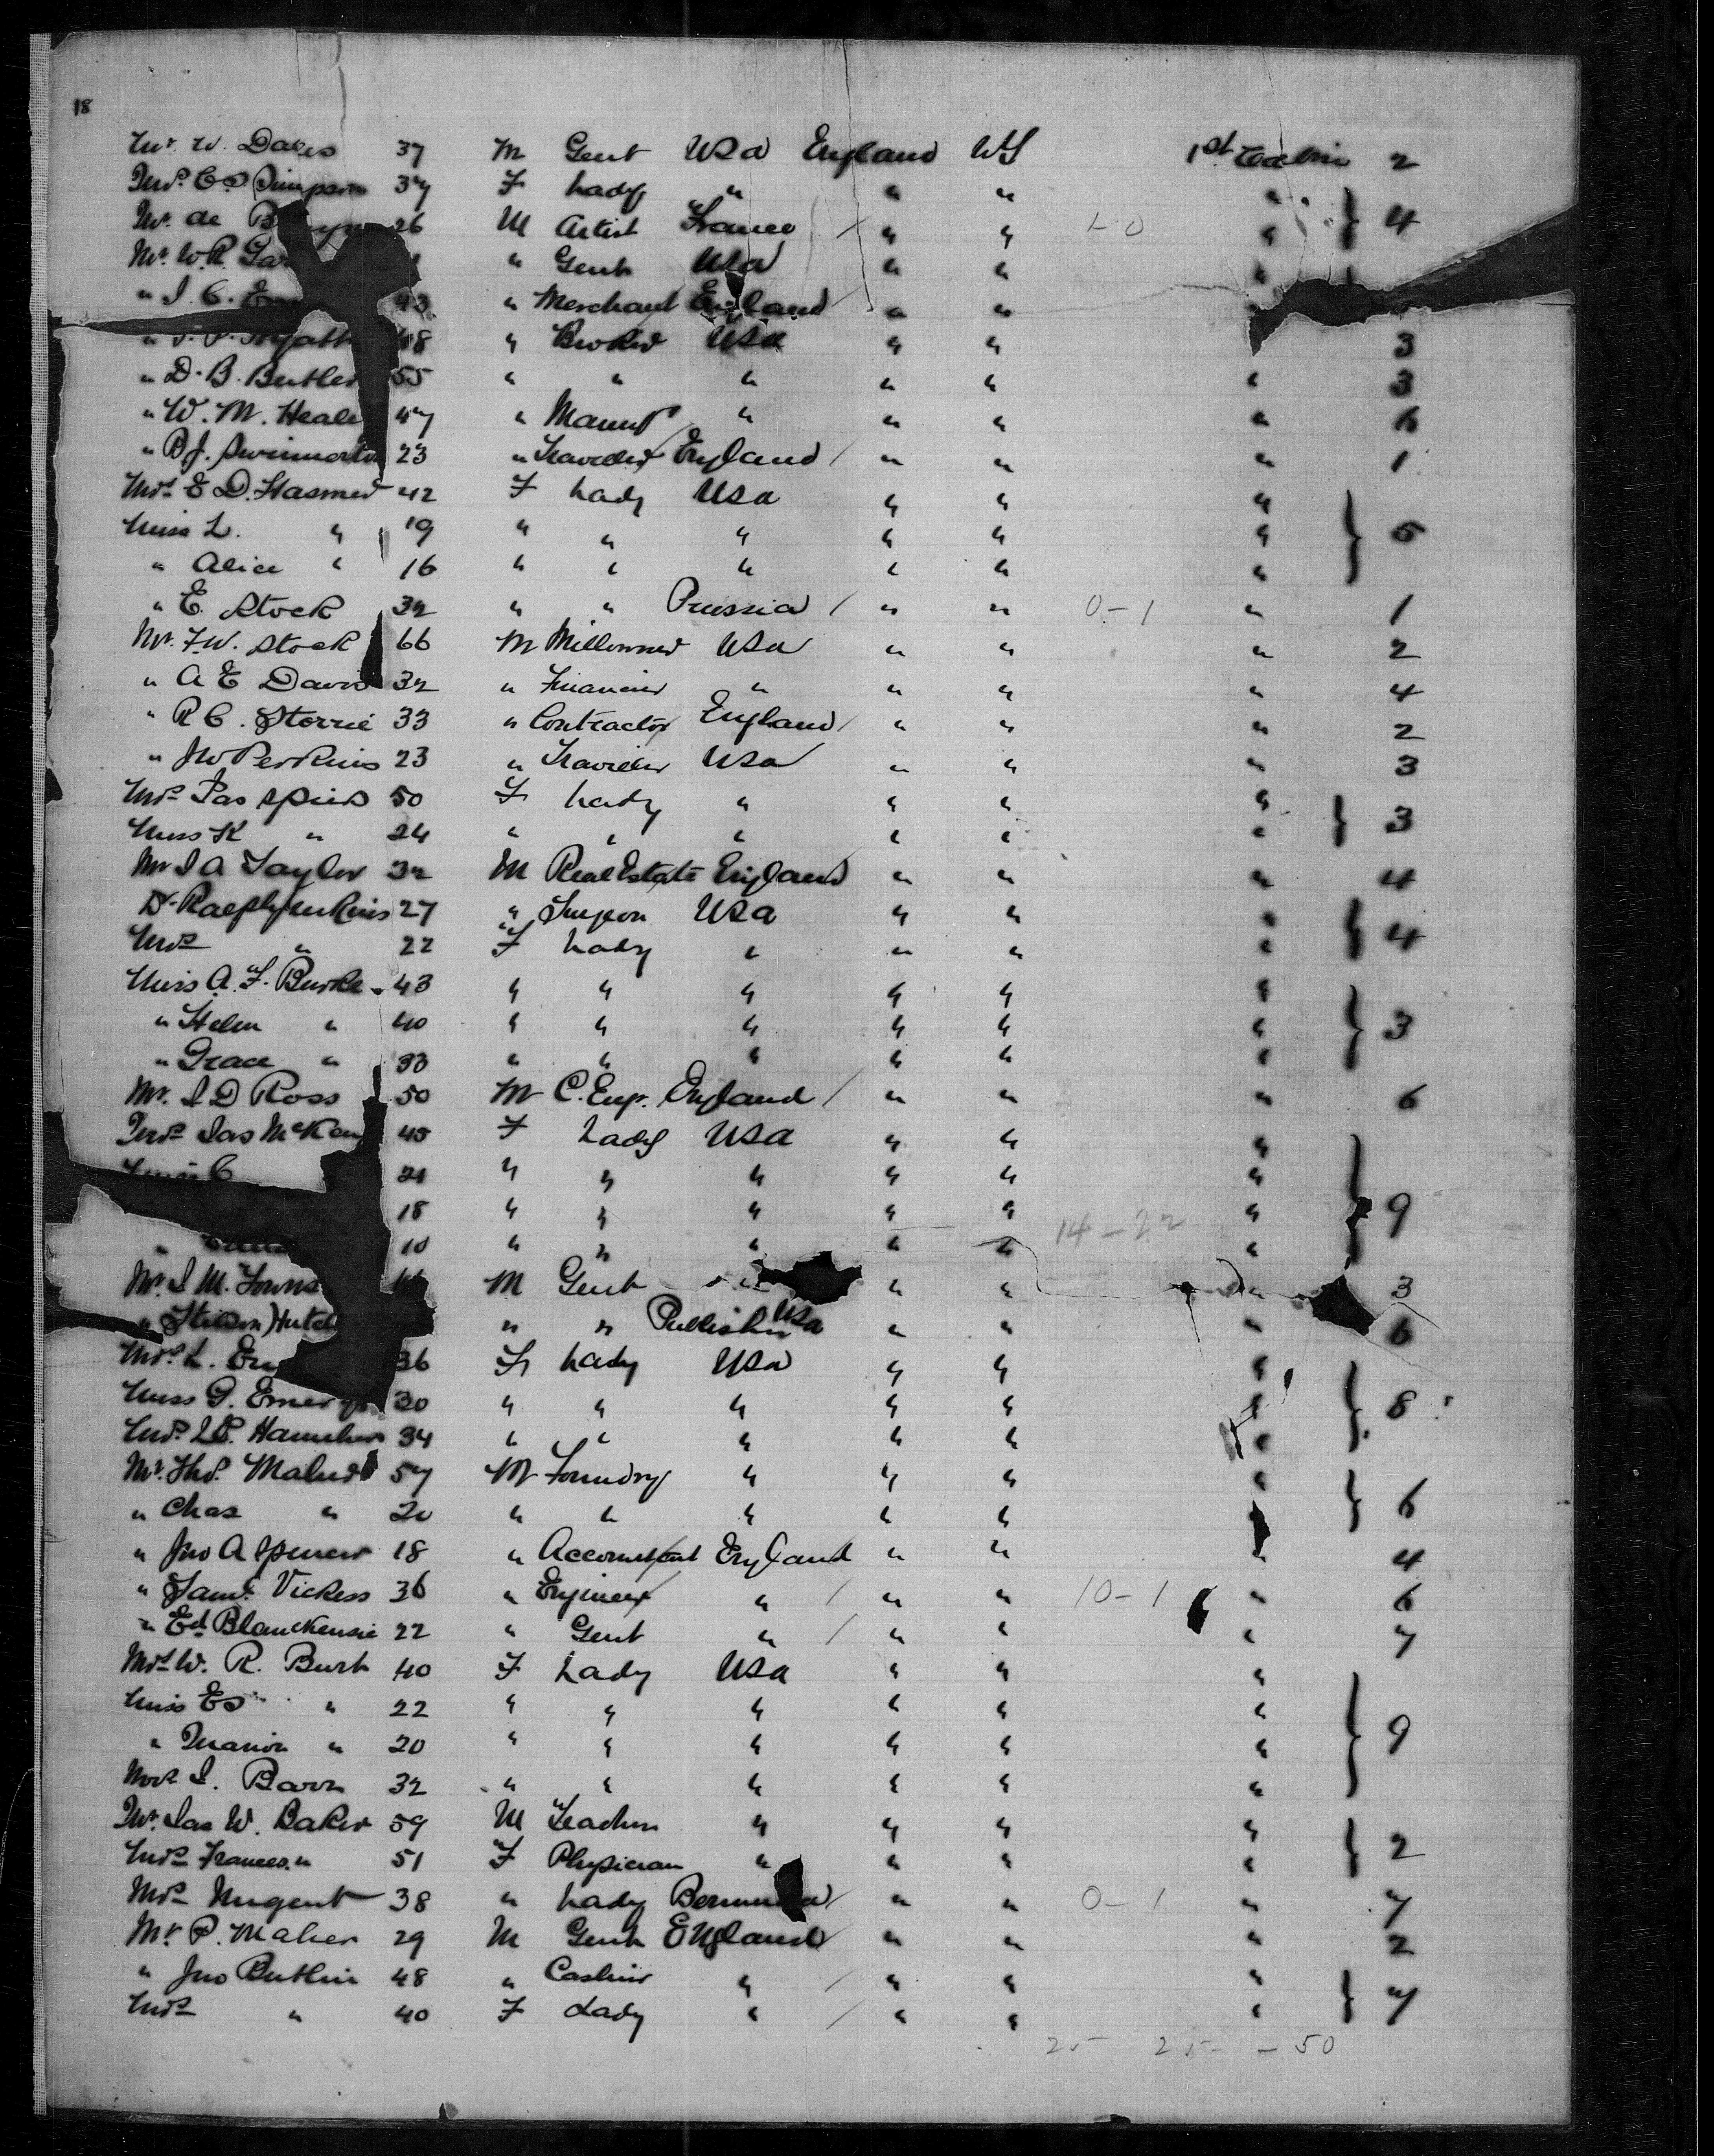 18
Mr. W. Dales 37 M Gent USA England US 1st Cabin 2
Mrs. C. Simpson 37 F Lady " " " "
Mr. de 26 M Artist France / " " 1-0 " } 4
Mr. W.R. " Gent USA " " "
" 43 " Merchant England / " "
" Hyatt 48 " Broker USA " " 3
" D. B. Butler 55 " " " " " " 3
" W. M. Heale 47 " Manuf " " " " 6
" B J. Swinnerton 23 " Traveller England / " " " 1
Mrs E D. Hasmer 42 F Lady USA " " "
Miss L. " 19 " " " " " " } 5
" Alice " 16 " " " " " "
" E. Stock 32 " " Prussia / " " 0-1 " 1
Mr. F.W. Stock 66 M Millowner USA " " " 2
" A E Davis 32 " Financier " " " " 4
" R C. Storrie 33 " Contractor England / " " " 2
" Jno Perkins 23 " Traveller USA " " " 3
Mrs Jas Spiers 50 F Lady " " " "
Miss K " 24 " " " " " " } 3
Mr J A Taylor 32 M Real Estate England " " " 4
Dr. Ralph Jenkins 27 " Surgeon USA " " "
Mrs " 22 F Lady " " " " } 4
Miss A. F. Burke 43 " " " " " "
" Helen " 40 " " " " " " } 3
" Grace " 33 " " " " " "
Mr. J D Ross 50 M C. Eng. England / " " " 6
Mrs Jas McKen 45 F Lady USA " " "
Miss C 21 " " " " " "
18 " " " " " " } 9
" 10 " " " " " 14-22 "
Mr. J M. Towns M Gent " " " 3
" Stilson Hutch " " Publisher USA " " " 6
Mrs. L. 36 F Lady USA " " "
Miss G. Emery 30 " " " " " " } 8
Mrs. 34 " " " " " "
Mr. Thos. 57 M Foundry " " " "
" Chas " 20 " " " " " " } 6
" Jno A Spencer 18 " Accountant England " " " 4
" Saml. Vickess 36 " Engineer " / " " 10-1 " 6
" Ed Blanckensie 22 " Gent " / " " " 7
Mrs W. R. Burt 40 F Lady USA " " "
Miss " 22 " " " " " "
" Marion " 20 " " " " " " } 9
Mrs J. Barr 32 " " " " " "
Mr. Jas W. Baker 59 M Teacher " " " "
Mrs Frances " 51 F Physician " " " " } 2
Mrs Nugent 38 " Lady Bermuda / " " 0-1 " 7
Mr. P. Maher 29 M Gent England " " " 2
" Jno Butlin 48 " Cashier " / " " "
Mrs " 40 F Lady " / " " " } 7
25 25 - 50